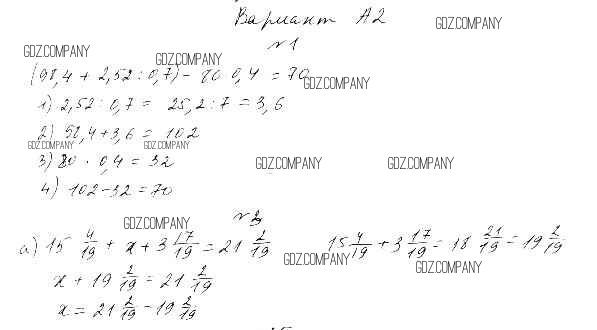 Вариант А2
GDZ.COMPANY
№1
GDZ.COMPANY
GDZ.COMPANY
(98,4 + 2,52 : 0,7) - 80 0,4 = 70
GDZ.COMPANY
1) 2,52 : 0,7 = 25,2 : 7 = 3,6
2) 98,4 + 3,6 = 102
GDZ.COMPANY GDZ.COMPANY
3) 80 · 0,4 = 32
GDZ.COMPANY GDZ.COMPANY
4) 102 - 32 = 70
№2
GDZ.COMPANY
а) 15 4/19 + x + 3 17/19 = 21 2/19 15 4/19 + 3 17/19 = 18 21/19 = 19 2/19
GDZ.COMPANY GDZ.COMPANY
x + 19 2/19 = 21 2/19
x = 21 2/19 - 19 2/19